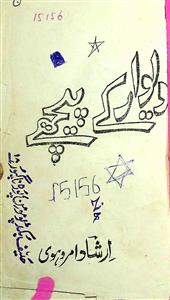 15156
دیوار کے پیچھے
15156
ارشاد امروہوی